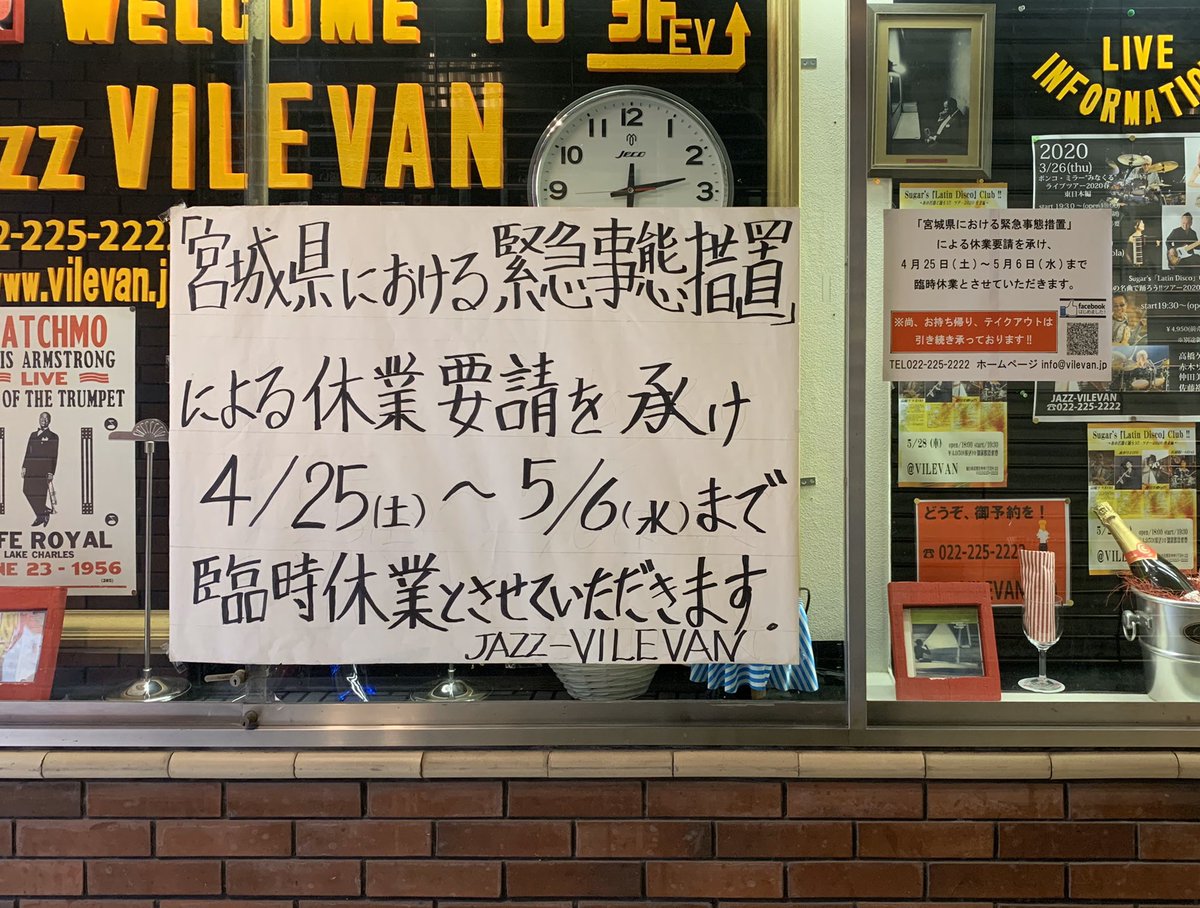 WELCOME TO 3F
EV
VILEVAN
2-225-222
www.vilevan.j
ATCHMO
IS ARMSTRONG
LIVE
OF THE TRUMPET
FE ROYAL
LAKE CHARLES
NE 23 - 1956
11 12 1
10 2
9 3
「宮城県における緊急事態措置」
による休業要請を承け
4/25(土)～5/6(水)まで
臨時休業とさせていただきます.
JAZZ-VILEVAN
LIVE
INFORMATIO
2020
3/26(thu)
ボンコ・ミラー"みなくる
東日本編
Sugar's「Latin Disco」Club!!
「宮城県における緊急事態措置」
による休業要請を承け、
4月25日(土)～5月6日(水)まで
臨時休業とさせていただきます。
facebook
はじめました!
※尚、お持ち帰り、テイクアウトは
引き続き承っております!!
TEL022-225-2222 ホームページ info@vilevan.jp
start19:30～
¥4,950
JAZZ-VILEVAN
☎022-225-2222
5/28
open/18:00 start/19:30
@VILEVAN
Sugar's「Latin Disco」Club!!
どうぞ、御予約を!
☎ 022-225-222